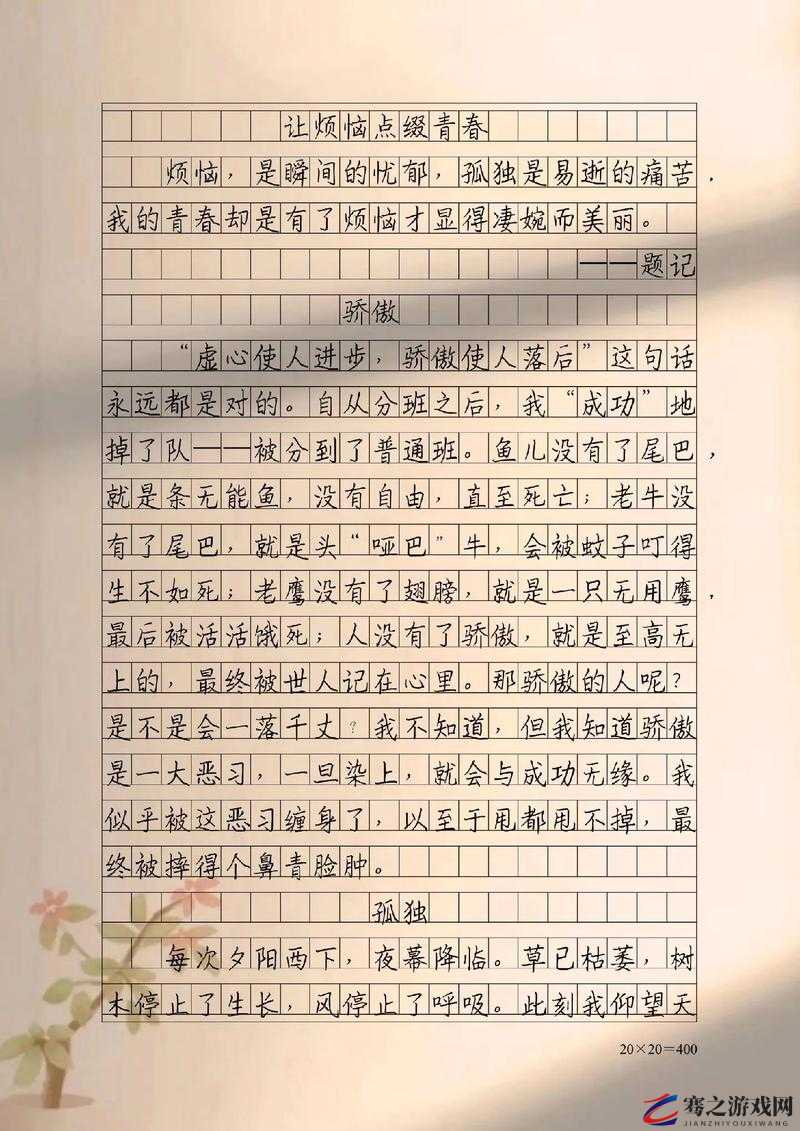 让烦恼点缀青春
烦恼，是瞬间的忧郁，孤独是易逝的痛苦，
我的青春却是有了烦恼才显得凄婉而美丽。
——题记
骄傲
“虚心使人进步，骄傲使人落后”这句话
永远都是对的。自从分班之后，我“成功”地
掉了队——被分到了普通班。鱼儿没有了尾巴，
就是条无能鱼，没有自由，直至死亡；老牛没
有了尾巴，就是头“哑巴”牛，会被蚊子叮得
生不如死；老鹰没有了翅膀，就是一只无用鹰，
最后被活活饿死；人没有了骄傲，就是至高无
上的，最终被世人记在心里。那骄傲的人呢？
是不是会一落千丈？我不知道，但我知道骄傲
是一大恶习，一旦染上，就会与成功无缘。我
似乎被这恶习缠身了，以至于甩都甩不掉，最
终被摔得个鼻青脸肿。
孤独
每次夕阳西下，夜幕降临。草已枯萎，树
木停止了生长，风停止了呼吸。此刻我仰望天
20×20=400
骞之游戏网
JIANZHIYOUXIWANG